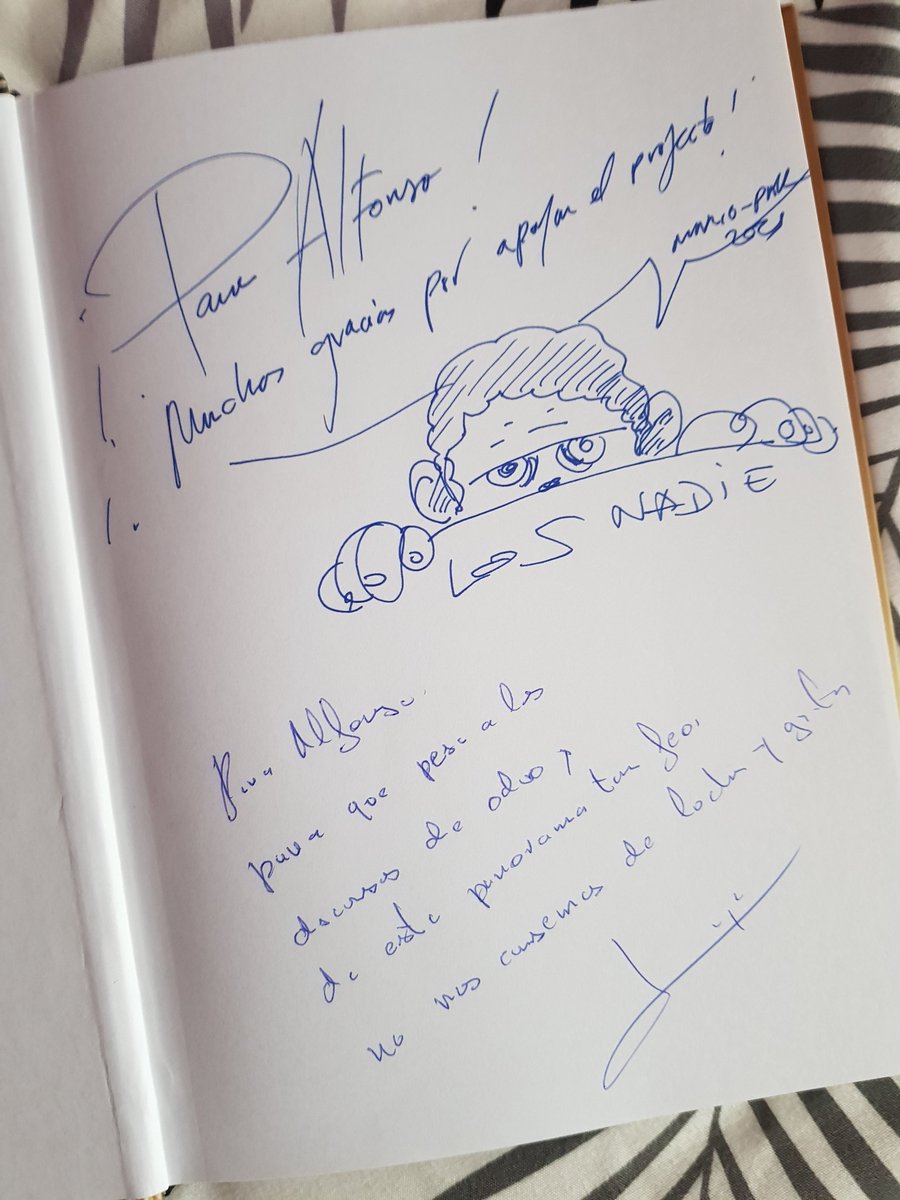 ¡Para Alfonso!
¡Muchas gracias por apoyar el projecto!
MARIO-PMK
2021
LOS NADIE
Para Alfonso.
para que pese a los
discursos de odio y
de este panorama tan feo,
no nos cansemos de luchar y gritar